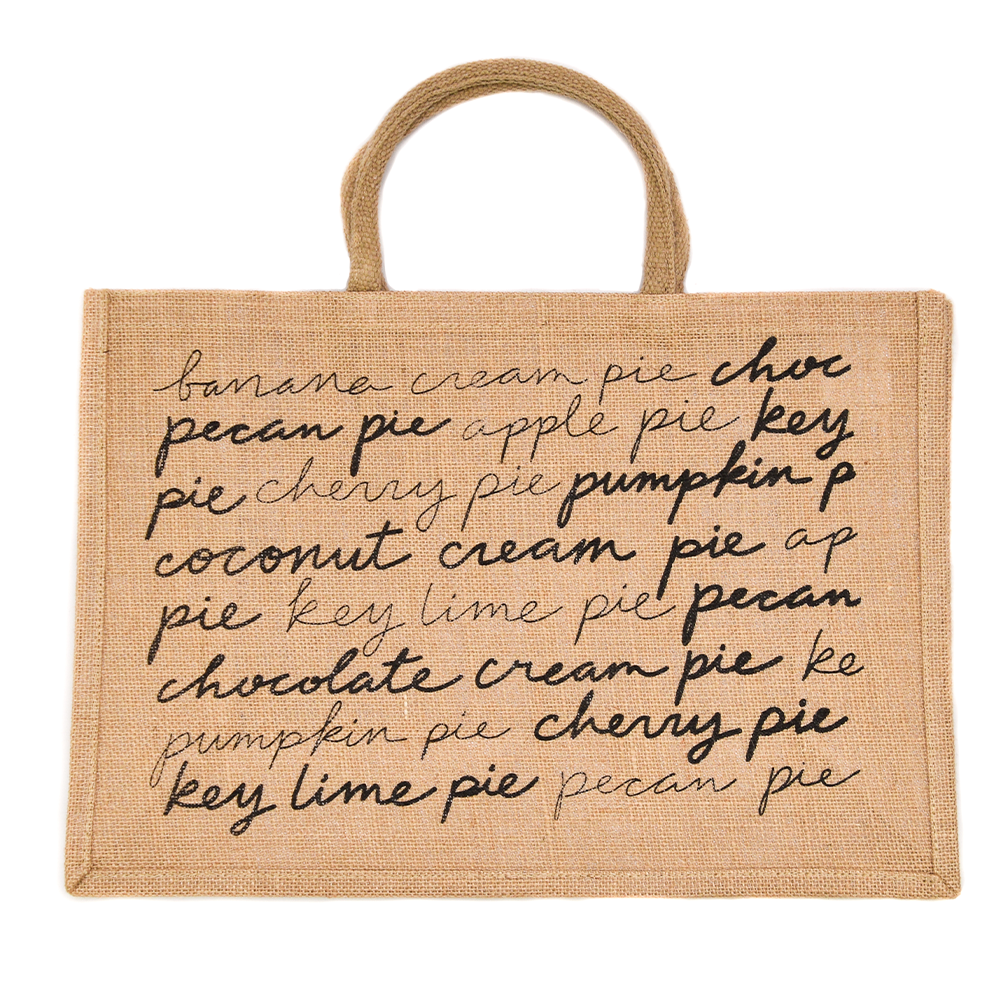 banana cream pie choc
pecan pie apple pie key
pie cherry pie pumpkin p
coconut cream pie ap
pie key lime pie pecan
chocolate cream pie ke
pumpkin pie cherry pie
key lime pie pecan pie